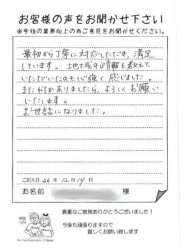 お客様の声をお聞かせ下さい
※今後の業務向上の為ご意見をお聞かせください。
最初から丁寧に対応していただき、満足
しています。地元域の情報を教えて
いただいたので心強く感じました。
また何かありましたら、よろしくお願い
いたします。
お世話になりました。
ご記入日 26年12月14日
お名前 様
貴重なご意見ありがとうございました！
今後も頑張りますので
宜しくお願い致します